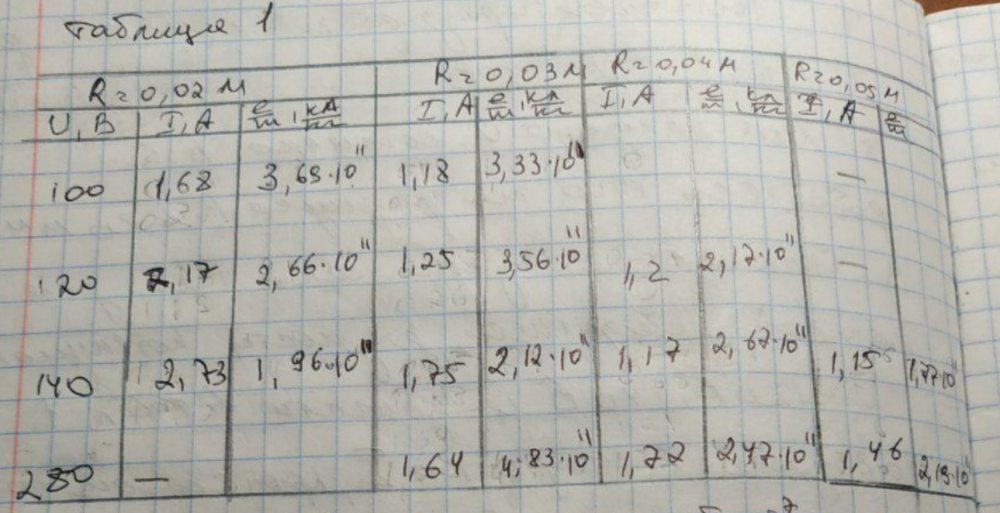 Таблица 1
R=0,02 м R=0,03 м R=0,04 м R=0,05 м
U, В I, А e/m, кл/кг I, А e/m, кл/кг I, А e/m, кл/кг I, А e/m
100 1,68 3,69·10¹¹ 1,18 3,33·10¹¹ —
120 2,17 2,66·10¹¹ 1,25 3,56·10¹¹ 1,2 2,17·10¹¹ —
140 2,73 1,96·10¹¹ 1,75 2,12·10¹¹ 1,17 2,67·10¹¹ 1,15 1,77·10¹¹
280 — 1,64 4,83·10¹¹ 1,72 2,47·10¹¹ 1,46 2,19·10¹¹